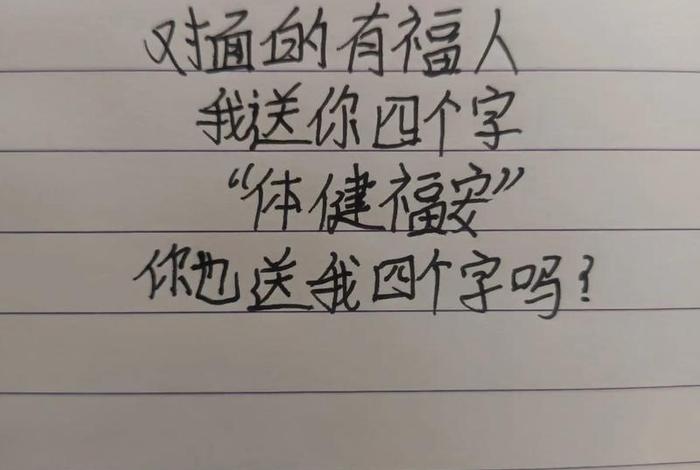 对面的有福人
我送你四个字
“体健福安”
你也送我四个字吗？